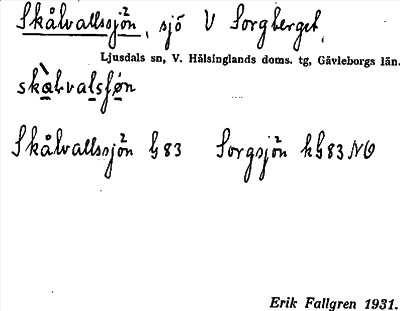 Skålvallssjön², sjö V Sorgberget.
Ljusdals sn, V. Hälsinglands doms. tg, Gävleborgs län.
Skålvallssjön² G83 Sorgsjön² kG83NO
Erik Fallgren 1931.